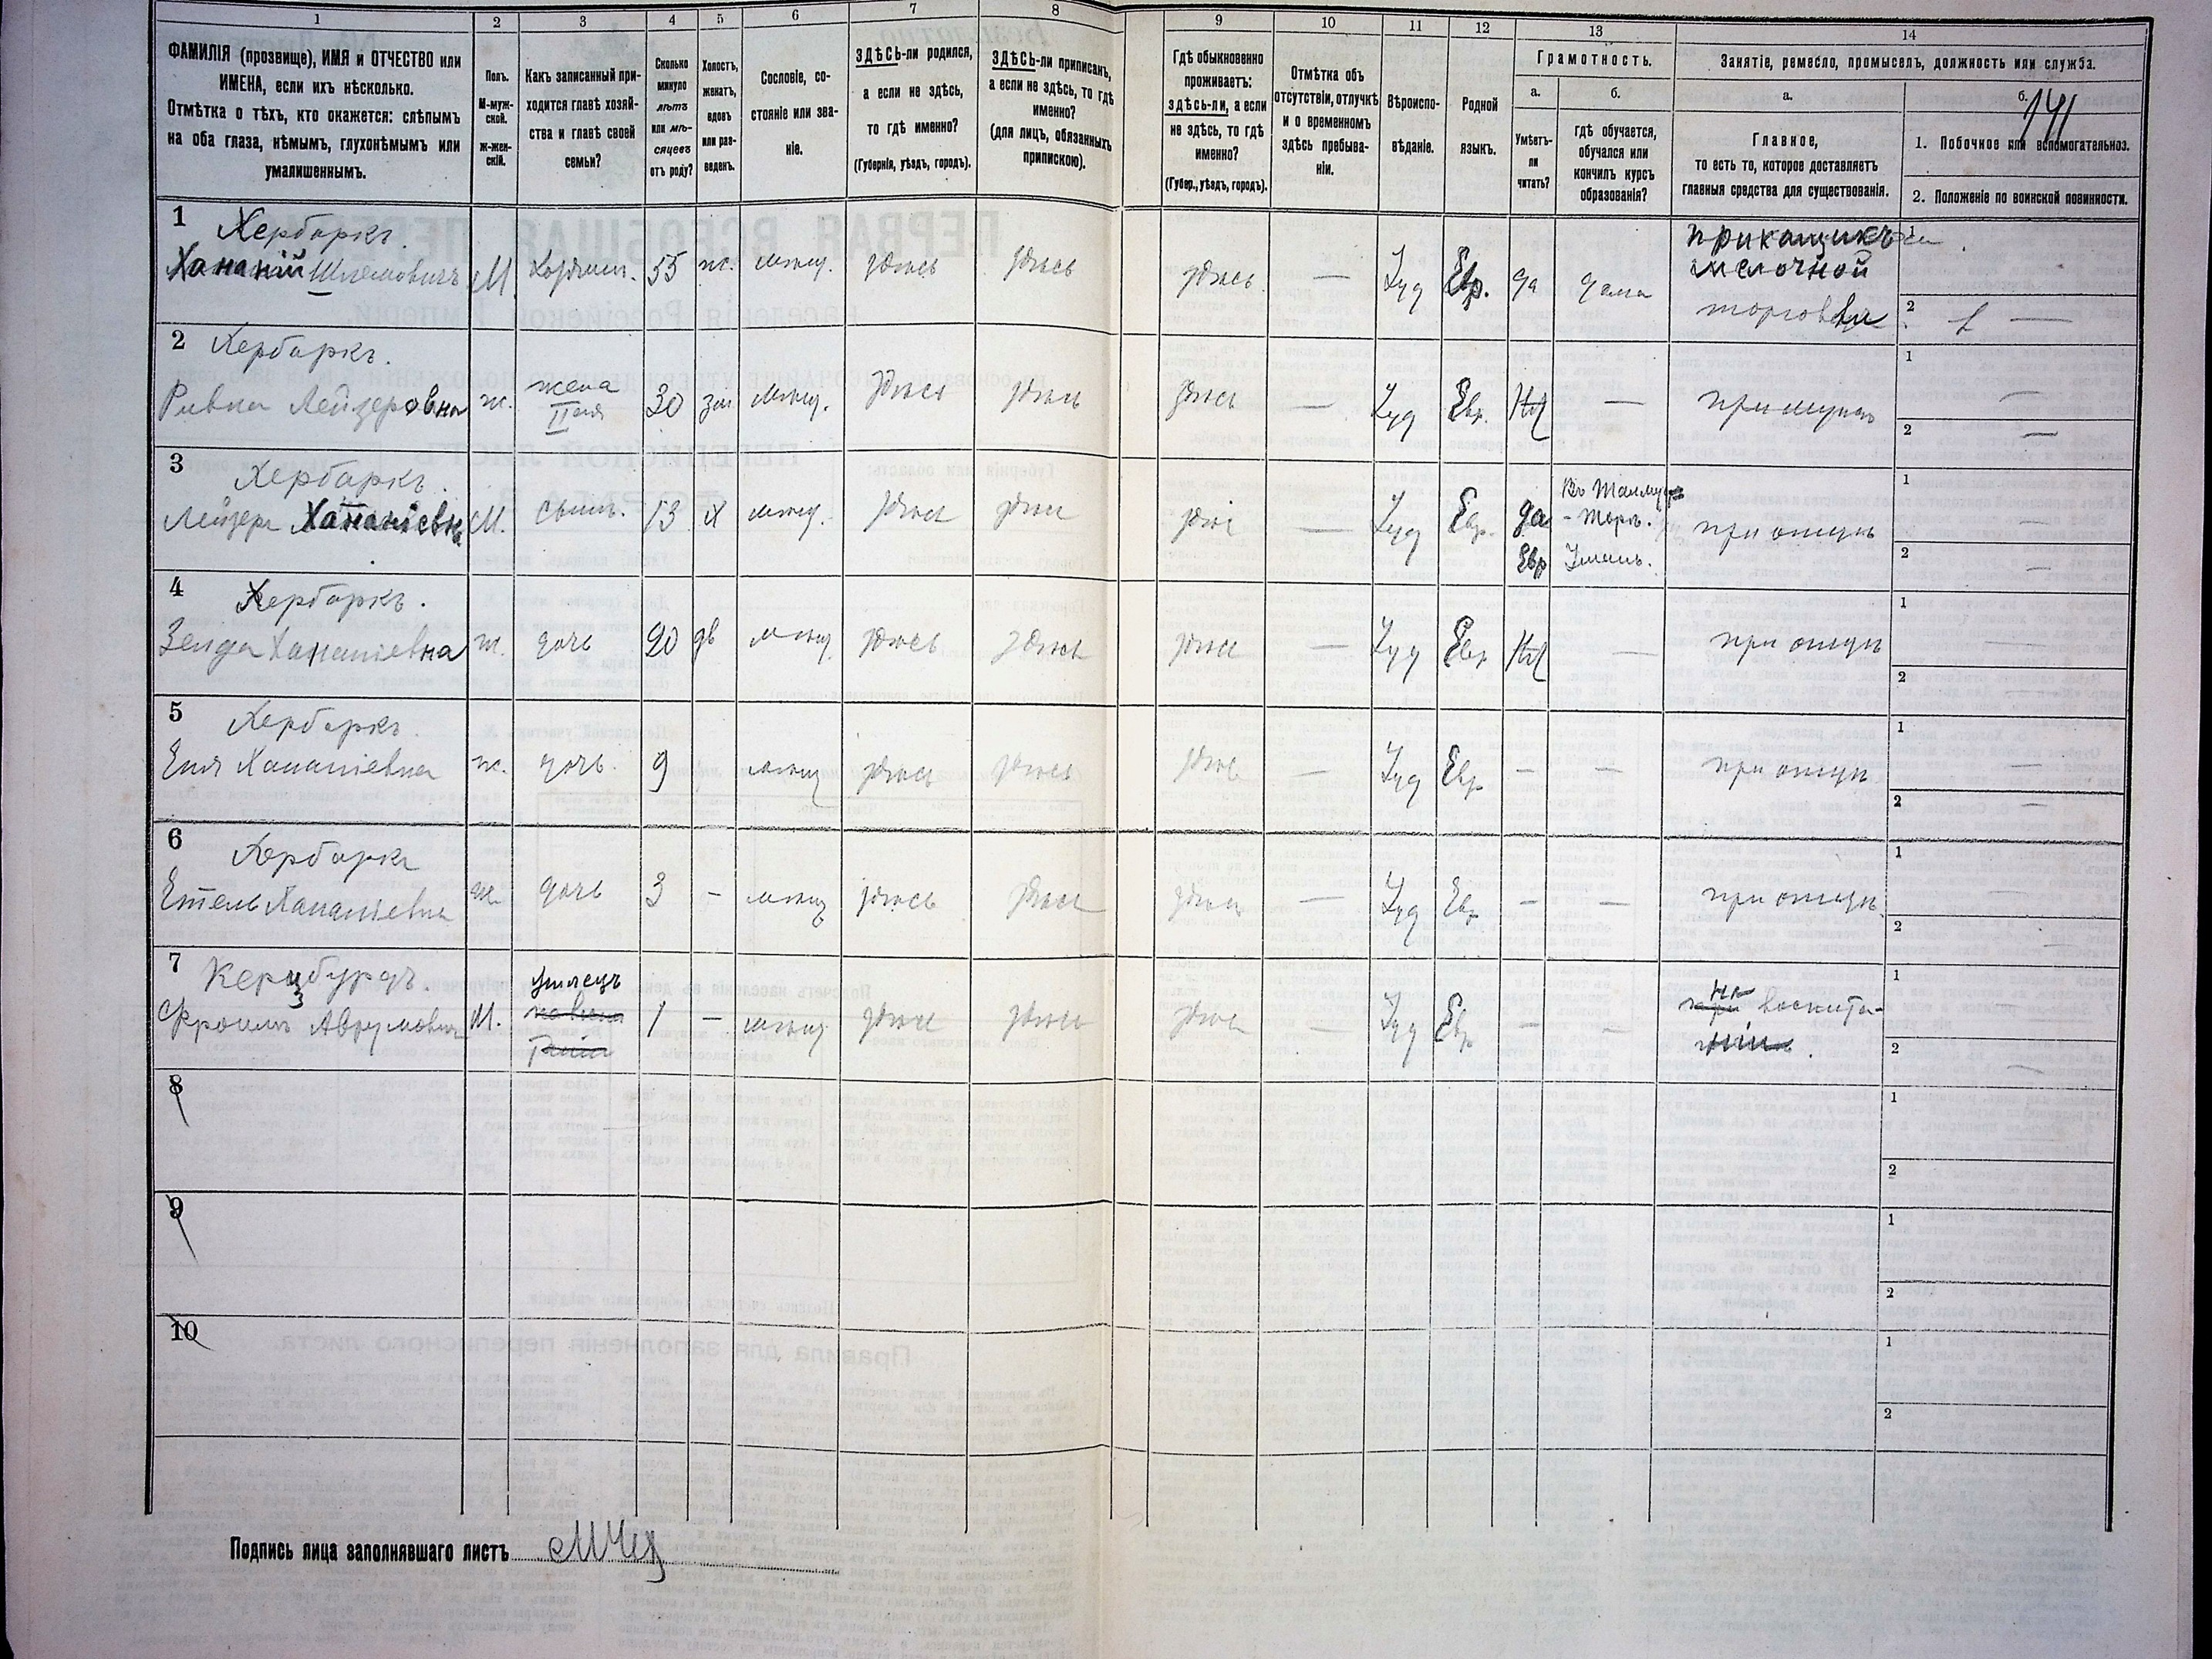 1 2 3 4 5 6 7 8 9 10 11 12 13 14
ФАМИЛІЯ (прозвище), ИМЯ и ОТЧЕСТВО или
ИМЕНА, если ихъ нѣсколько.
Отмѣтка о тѣхъ, кто окажется: слѣпымъ
на оба глаза, нѣмымъ, глухонѣмымъ или
умалишеннымъ.
Полъ.
М-муж-
ской.
ж-жен-
скій.
Какъ записанный при-
ходится главѣ хозяй-
ства и главѣ своей
семьи?
Сколько
минуло
лѣтъ
или мѣ-
сяцевъ
отъ роду?
Холостъ,
женатъ,
вдовъ
или раз-
веденъ.
Сословіе, со-
стояніе или зва-
ніе.
ЗДѢСЬ-ли родился,
а если не здѣсь,
то гдѣ именно?
(Губернія, уѣздъ, городъ).
ЗДѢСЬ-ли приписанъ,
а если не здѣсь, то гдѣ
именно?
(для лицъ, обязанныхъ
припискою).
Гдѣ обыкновенно
проживаетъ:
здѣсь-ли, а если
не здѣсь, то гдѣ
именно?
(Губер., уѣздъ, городъ).
Отмѣтка объ
отсутствіи, отлучкѣ
и о временномъ
здѣсь пребыва-
ніи.
Вѣроиспо-
вѣданіе.
Родной
языкъ.
Грамотность.
а.
Умѣетъ-
ли
читать?
б.
гдѣ обучается,
обучался или
кончилъ курсъ
образованія?
Занятіе, ремесло, промыселъ, должность или служба.
а.
Главное,
то есть то, которое доставляетъ
главныя средства для существованія.
б.
141
1. Побочное или вспомогательное.
2. Положеніе по воинской повинности.
1 Хербаркъ.
Хананій Шлемовичъ М. хозяин. 55 ж. мѣщ. здѣсь здѣсь здѣсь — Іуд Евр. да дома
прикащикъ
мелочной
торговли
1
2 —
2 Хербаркъ.
Ривка Лейзеровна ж. жена
II
30 зам мѣщ. здѣсь здѣсь здѣсь — Іуд Евр. нѣт — при мужѣ
1 —
2 —
3 Хербаркъ.
Лейзеръ Хананіевъ М. сынъ. 13 х мѣщ. здѣсь здѣсь здѣсь — Іуд Евр. да
Евр
Въ Талмуд
-Торъ.
Умань.
при отцѣ
1 —
2
4 Хербаркъ.
Зельда Хананіевна ж. дочь 20 дѣв мѣщ здѣсь здѣсь здѣсь — Іуд Евр нѣт — при отцѣ
1 —
2
5 Хербаркъ.
Еня Хананіевна ж. дочь. 9 мѣщ здѣсь здѣсь здѣсь — Іуд Евр — — при отцѣ
1 —
2 —
6 Хербаркъ
Етель Хананіевна ж. дочь 3 — мѣщ здѣсь здѣсь здѣсь — Іуд Евр — — при отцѣ
1 —
2 —
7 Керцбурдъ.
Фроимъ Аврумовичъ М.
1 — мѣщ здѣсь здѣсь здѣсь — Іуд Евр — —
на воспита-
ніи.
1 —
2 —
8
1
2
9
1
2
10
1
2
Подпись лица заполнявшаго листъ